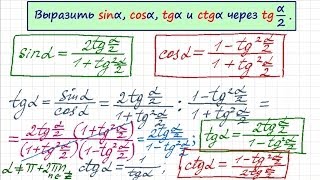 Выразить sinα, cosα, tgα и ctgα через tg α/2.
sinα = 2tg α/2 / 1+tg² α/2 cosα = 1-tg² α/2 / 1+tg² α/2
tgα = sinα/cosα = 2tg α/2 / 1+tg² α/2 : 1-tg² α/2 / 1+tg² α/2 =
= 2tg α/2 (1+tg² α/2) / (1+tg² α/2)(1-tg² α/2) = 2tg α/2 / 1-tg² α/2 ; tgα = 2tg α/2 / 1-tg² α/2
α ≠ π+2πn, ctgα = 1/tgα ; ctgα = 1-tg² α/2 / 2tg α/2